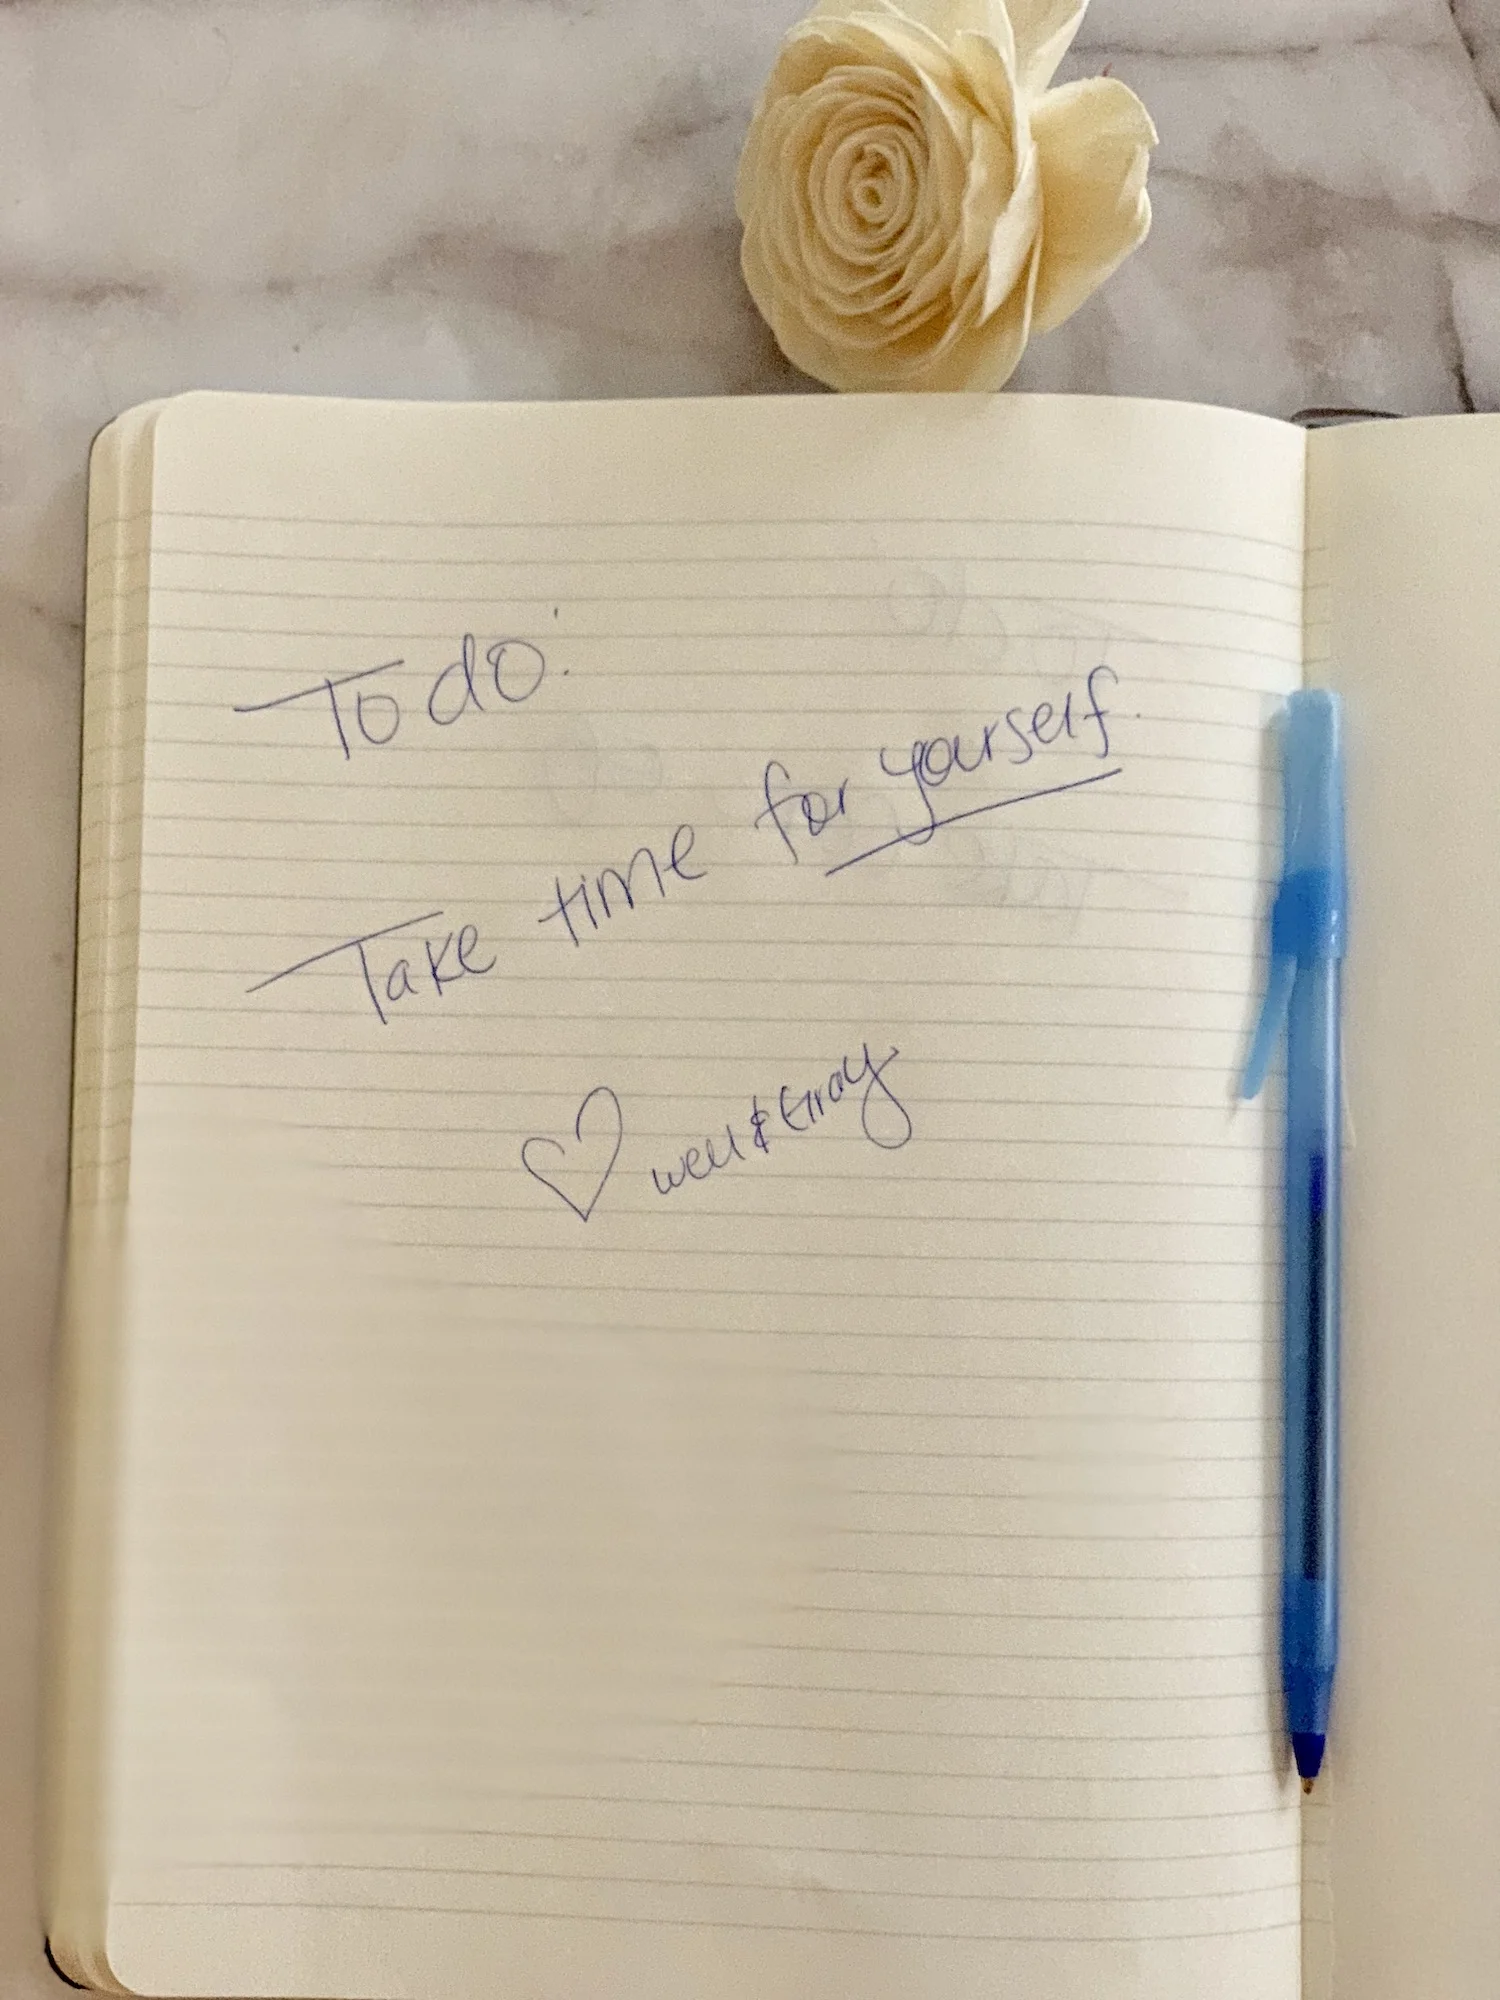 To do:
Take time for yourself.
♡ well & tiray